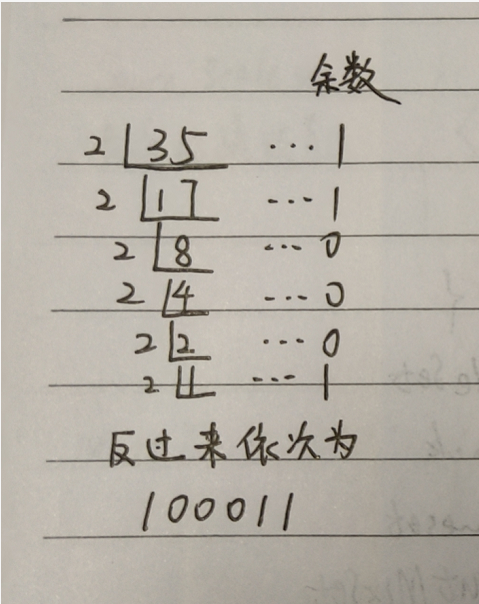 余数
2 35 ··· 1
2 17 ··· 1
2 8 ··· 0
2 4 ··· 0
2 2 ··· 0
2 1 ··· 1
反过来依次为
100011